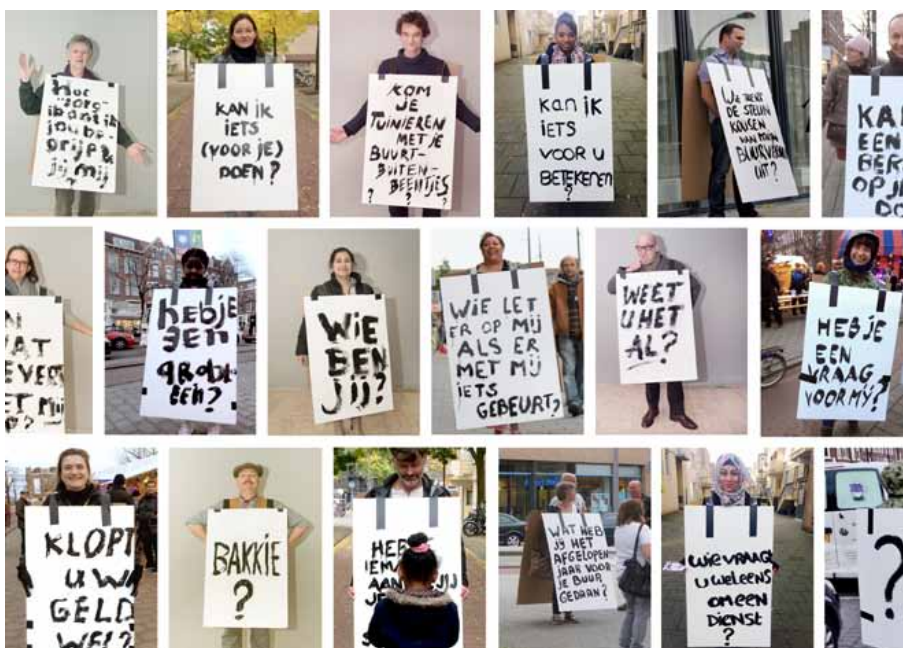 "zorg"
jou be
grijp &
jij mij
KAN IK
IETS
(VOOR JE)
DOEN?
KOM
JE
TUINIEREN
MET JE
BUURT-
BUITEN-
BEENTJES
? ? ?
kan ik
IETS
VOOR U
BETEKENEN
?
WIE TREKT
DE STEUN
KOUSEN
VAN MIJN
BUURVROUW
UIT?
KA
EEN
BER
OP J
DO
WAT
hebje
een
WIE
BEN
JIJ?
WIE LET
ER OP MIJ
ALS ER
MET MIJ
IETS
GEBEURT?
WEET
U HET
AL?
HEB JE
EEN
VRAAG
VOOR MIJ?
KLOPT
UW
GELD
WEL?
BAKKIE
?
HEB
IEM
AAN JIJ
JE
WAT HEB
JIJ HET
AFGELOPEN
JAAR VOOR
JE BUUR
GEDAAN?
WIE VRAAGT
U WEL EENS
OM EEN
DIENST
?
?